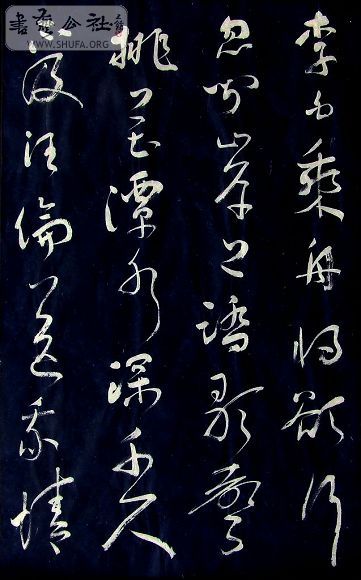 李白乘舟將欲行
忽聞岸上踏歌聲
桃花潭水深千尺
不及汪倫送我情
WWW.SHUFA.ORG